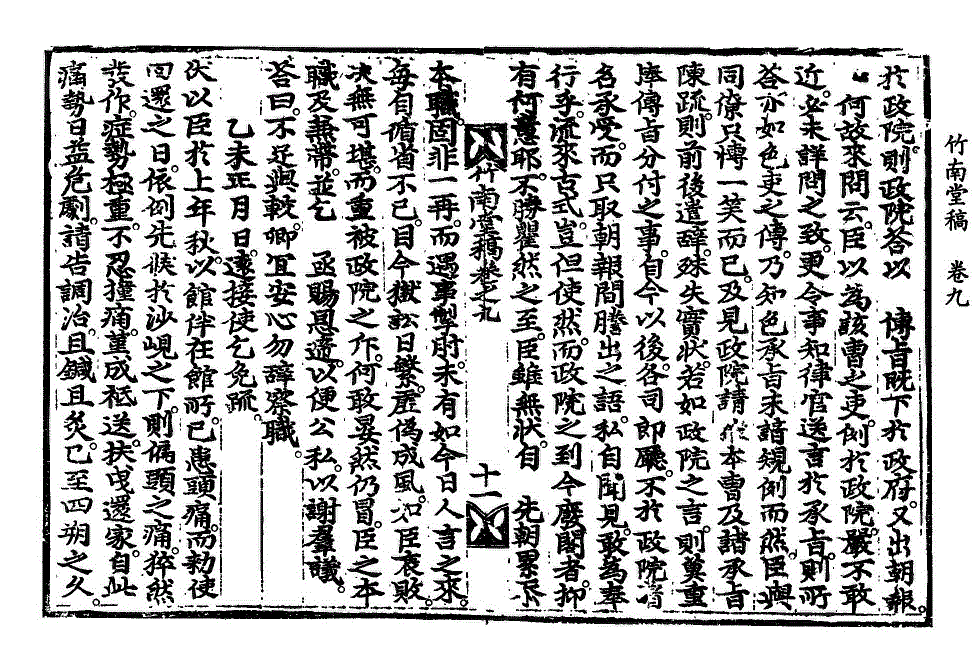 竹南堂稿 卷九
於政院則政院答以 傳旨旣下於政府又出朝報
何故來問云臣以爲該曹之吏例於政院嚴不敢
近必未詳問之致更令事知律官送言於承旨則所
答亦如色吏之傳乃知色承旨未諳規例而然臣與
同僚只愽一笑而已及見政院請推本曹及諸承旨
陳疏則前後遣辭殊失實狀若如政院之言則莫重
陣傳旨分付之事自今以後各司郎廳不於政院省
名承受而只取朝報間謄出之語私自聞見敢爲奉
行乎流來古式豈但使然而政院之到今廢閣者抑
有何意耶不勝瞿然之至臣雖無狀自 先朝累忝
竹南堂稿卷之九 十一
本職固非一再而遇事掣肘未有如今日人言之來
每自循省不已目今獄訟日繁虛僞成風如臣衰敗
决無可堪而重被政院之斥何敢晏然仍冒臣之本
職及兼帶並乞 亟賜恩遞以便公私以謝羣議
答曰不足與較卿宜安心勿辭察職
乙未正月日遠接使乞免疏
伏以臣於上年秋以館伴在館所已患頭痛而勅使
回還之日依例先候於沙峴之下則偏頭之痛猝然
發作症勢極重不忍撞痛菫成祗送扶曳還家自此
痛勢日益危劇諸告調治且鍼且灸已至四朔之久